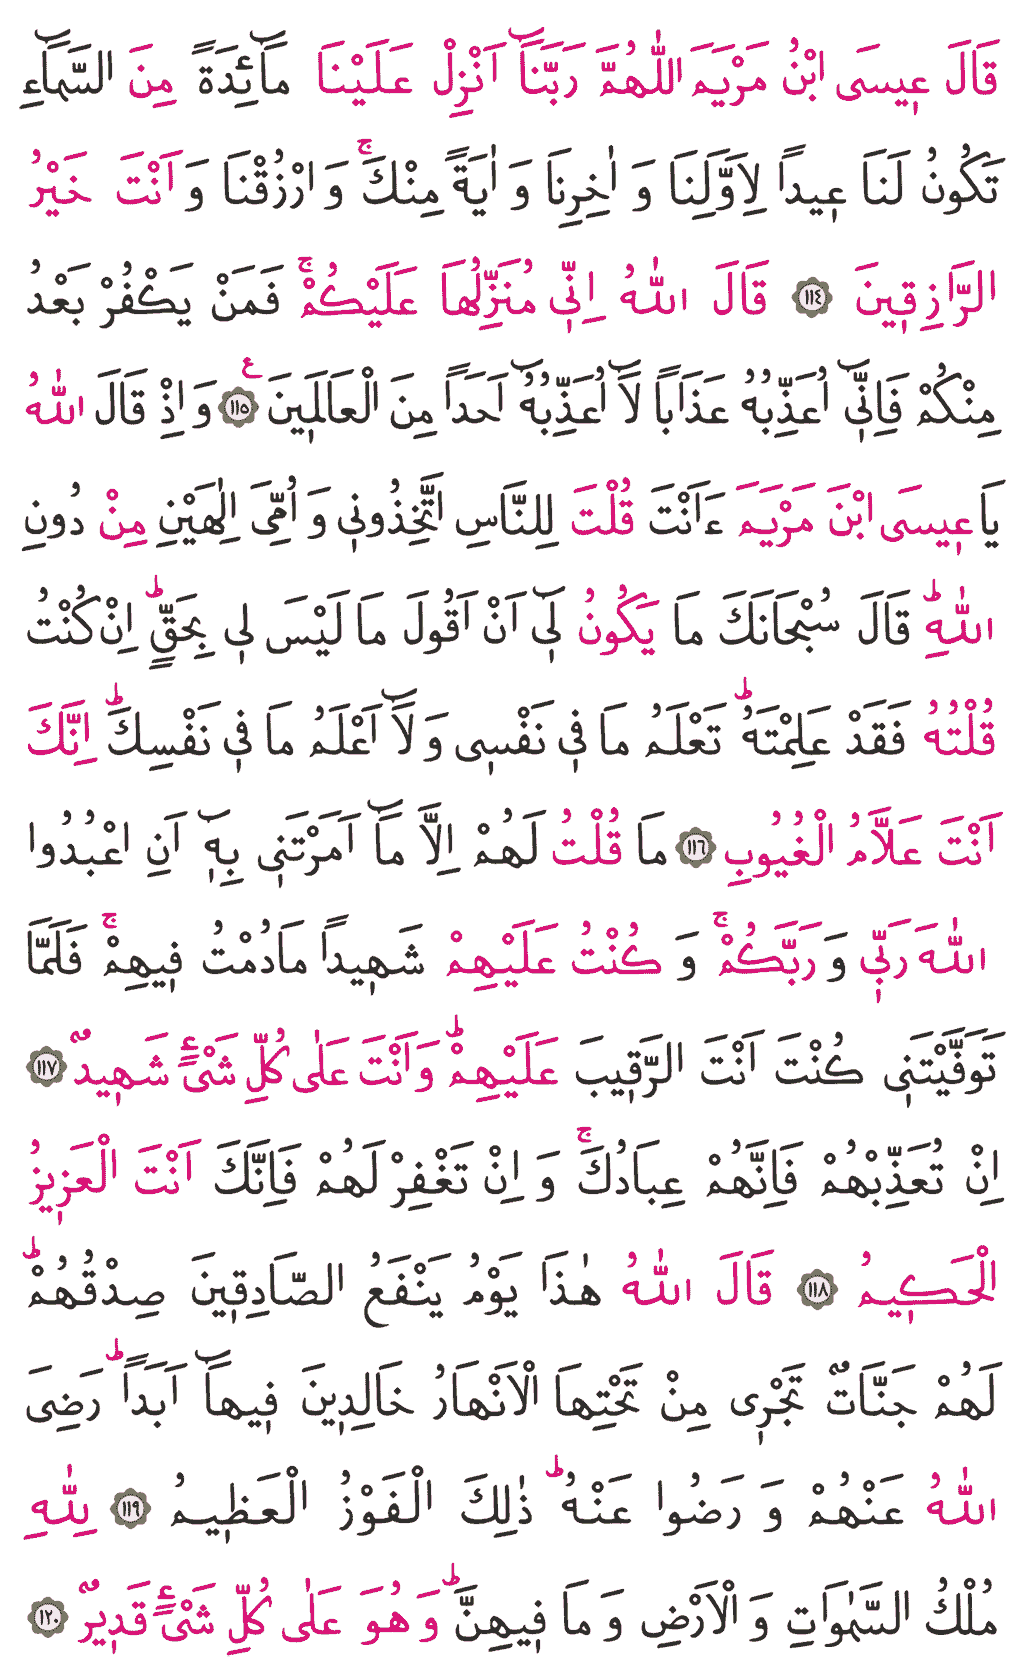 قَالَ عٖيسَى ابْنُ مَرْيَمَ اللّٰهُمَّ رَبَّنَٓا اَنْزِلْ عَلَيْنَا مَٓائِدَةً مِنَ السَّمَٓاءِ
تَكُونُ لَنَا عٖيداً لِاَوَّلِنَا وَ اٰخِرِنَا وَ اٰيَةً مِنْكَۚ وَ ارْزُقْنَا وَ اَنْتَ خَيْرُ
الرَّازِقٖينَ ﴿١١٤﴾ قَالَ اللّٰهُ اِنّٖى مُنَزِّلُهَا عَلَيْكُمْۚ فَمَنْ يَكْفُرْ بَعْدُ
مِنْكُمْ فَاِنّٖٓى اُعَذِّبُهُ عَذَاباً لَٓا اُعَذِّبُهُٓ اَحَداً مِنَ الْعَالَمٖينَ ﴿١١٥﴾ ع وَ اِذْ قَالَ اللّٰهُ
يَا عٖيسَى ابْنَ مَرْيَمَ ءَاَنْتَ قُلْتَ لِلنَّاسِ اتَّخِذُونٖى وَ اُمِّىَ اِلٰهَيْنِ مِنْ دُونِ
اللّٰهِؕ قَالَ سُبْحَانَكَ مَا يَكُونُ لٖٓى اَنْ اَقُولَ مَا لَيْسَ لٖى بِحَقٍّؕ اِنْ كُنْتُ
قُلْتُهُ فَقَدْ عَلِمْتَهُؕ تَعْلَمُ مَا فٖى نَفْسٖى وَ لَٓا اَعْلَمُ مَا فٖى نَفْسِكَؕ اِنَّكَ
اَنْتَ عَلَّامُ الْغُيُوبِ ﴿١١٦﴾ مَا قُلْتُ لَهُمْ اِلَّا مَٓا اَمَرْتَنٖى بِهٖٓ اَنِ اعْبُدُوا
اللّٰهَ رَبّٖى وَ رَبَّكُمْۚ وَ كُنْتُ عَلَيْهِمْ شَهٖيداً مَادُمْتُ فٖيهِمْۚ فَلَمَّا
تَوَفَّيْتَنٖى كُنْتَ اَنْتَ الرَّقٖيبَ عَلَيْهِمْؕ وَ اَنْتَ عَلٰى كُلِّ شَىْءٍ شَهٖيدٌ ﴿١١٧﴾
اِنْ تُعَذِّبْهُمْ فَاِنَّهُمْ عِبَادُكَۚ وَ اِنْ تَغْفِرْ لَهُمْ فَاِنَّكَ اَنْتَ الْعَزٖيزُ
الْحَكٖيمُ ﴿١١٨﴾ قَالَ اللّٰهُ هٰذَا يَوْمُ يَنْفَعُ الصَّادِقٖينَ صِدْقُهُمْؕ
لَهُمْ جَنَّاتٌ تَجْرٖى مِنْ تَحْتِهَا الْاَنْهَارُ خَالِدٖينَ فٖيهَٓا اَبَداًؕ رَضِىَ
اللّٰهُ عَنْهُمْ وَ رَضُوا عَنْهُؕ ذٰلِكَ الْفَوْزُ الْعَظٖيمُ ﴿١١٩﴾ لِلّٰهِ
مُلْكُ السَّمٰوَاتِ وَ الْاَرْضِ وَ مَا فٖيهِنَّؕ وَ هُوَ عَلٰى كُلِّ شَىْءٍ قَدٖيرٌ ﴿١٢٠﴾